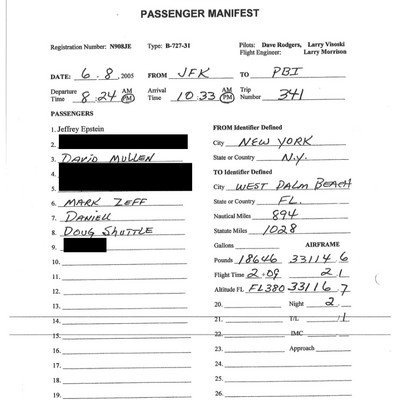 PASSENGER MANIFEST
Registration Number: N908JE Type: B-727-31 Pilots: Dave Rodgers, Larry Visoski
Flight Engineer: Larry Morrison
DATE: 6.8, 2005 FROM JFK TO PBI
Departure Time 8:24 AM PM Arrival Time 10:33 AM PM Trip Number 341
PASSENGERS
1. Jeffrey Epstein
2.
3. DAVID MULLEN
4.
5.
6. MARK ZEFF
7. DANIELL
8. DOUG SHUTTLE
9.
10.
11.
12.
13.
14.
15.
16.
17.
18.
19.
FROM Identifier Defined
City NEW YORK
State or Country N.Y.
TO Identifier Defined
City WEST PALM BEACH
State or Country FL.
Nautical Miles 894
Statute Miles 1028
Gallons AIRFRAME
Pounds 18646 33114.6
Flight Time 2.09 2.1
Altitude FL FL380 33116.7
20. Night 2.
21. I/L .1
22. IMC
23. Approach
24.
25.
26.